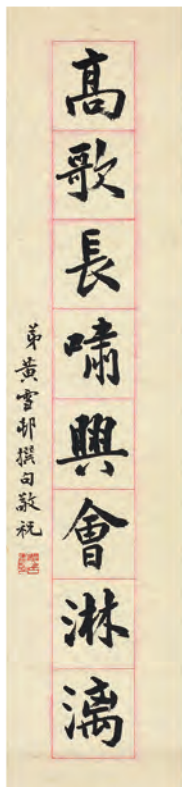 高歌長嘯興會淋漓
弟黃雪邨撰句敬祝